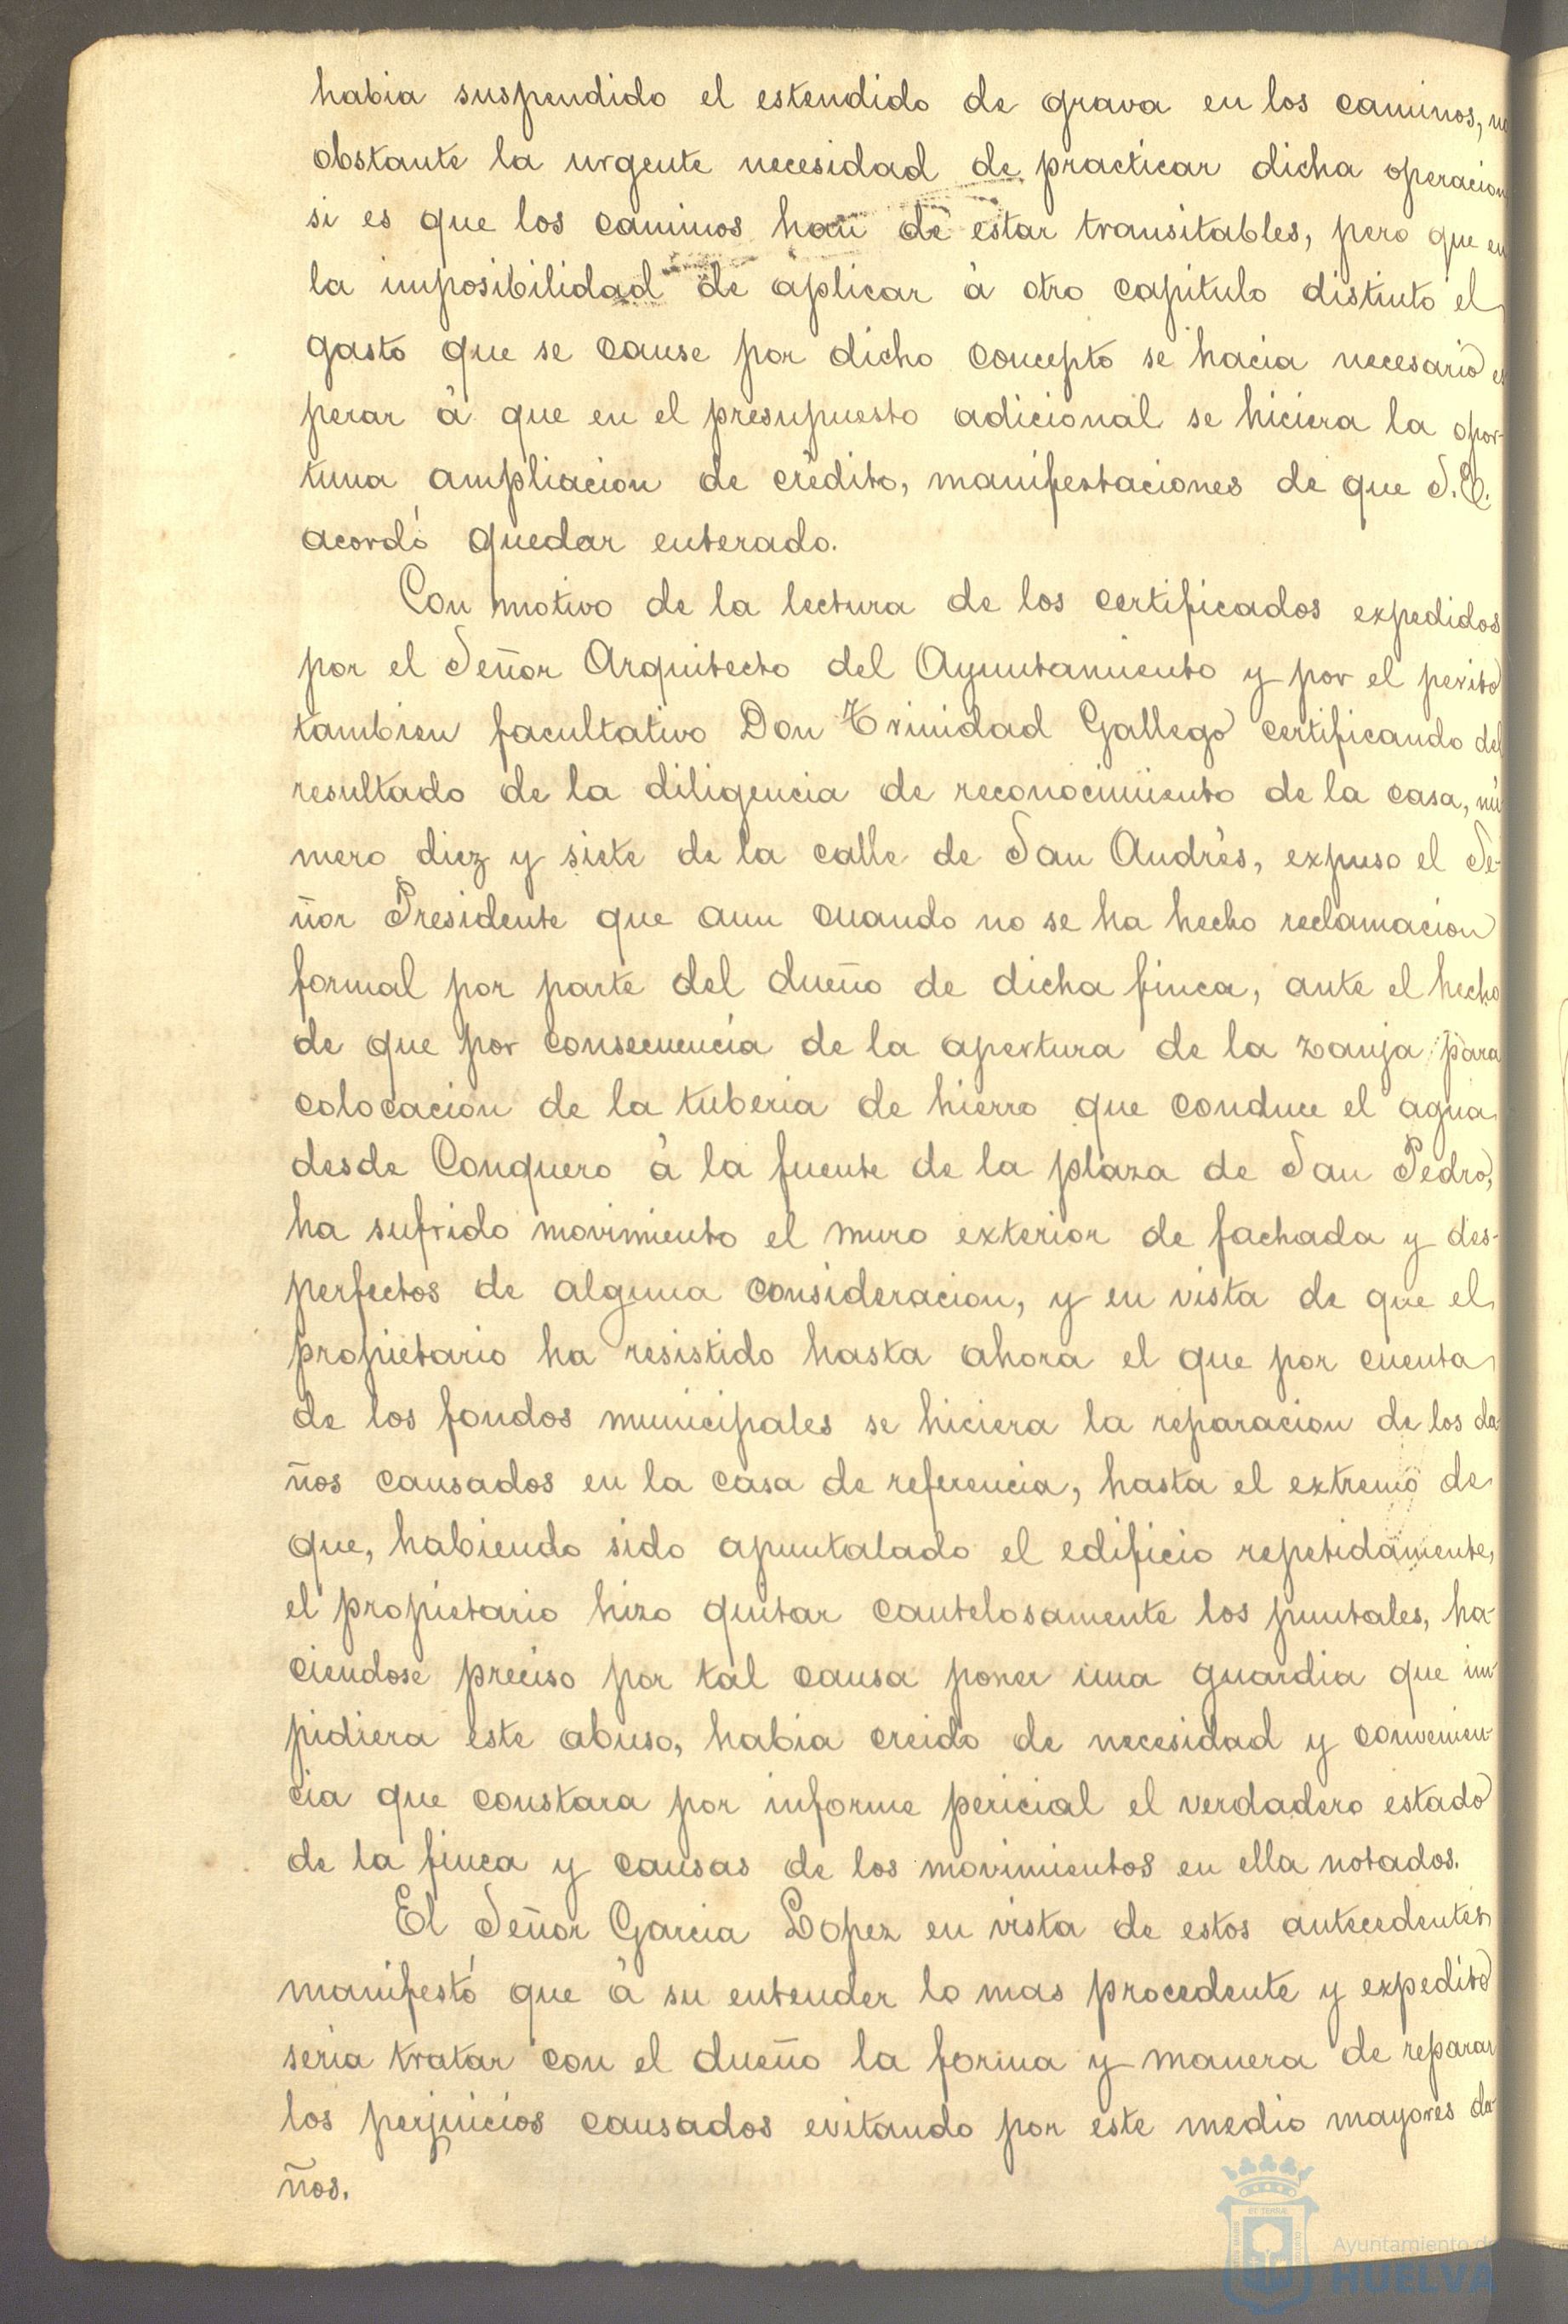 habia suspendido el estendido de grava en los caminos, no
obstante la urgente necesidad de practicar dicha operacion
si es que los caminos han de estar transitables, pero que en
la imposibilidad de aplicar à otro capitulo distinto el
gasto que se cause por dicho concepto se hacia necesario es
perar à que en el presupuesto adicional se hiciera la opor-
tuna ampliacion de crédito, manifestaciones de que S.E.
acordó quedar enterado.
Con motivo de la lectura de los certificados expedidos
por el Señor Arquitecto del Ayuntamiento y por el perito
tambien facultativo Don Trinidad Gallego certificando del
resultado de la diligencia de reconocimiento de la casa, nú
mero diez y siete de la calle de San Andrés, expuso el Se-
ñor Presidente que aun cuando no se ha hecho reclamacion
formal por parte del dueño de dicha finca, ante el hecho
de que por consecuencia de la apertura de la zanja para
colocacion de la tuberia de hierro que conduce el agua
desde Conquero à la fuente de la plaza de San Pedro,
ha sufrido movimiento el muro exterior de fachada y des-
perfectos de alguna consideracion, y en vista de que el
propietario ha resistido hasta ahora el que por cuenta
de los fondos municipales se hiciera la reparacion de los da-
ños causados en la casa de referencia, hasta el extremo de
que, habiendo sido apuntalado el edificio repetidamente,
el propietario hizo quitar cautelosamente los puntales, ha-
ciendose preciso por tal causa poner una guardia que im-
pidiera este abuso, habia creido de necesidad y convenien-
cia que constara por informe pericial el verdadero estado
de la finca y causas de los movimientos en ella notados.
El Señor Garcia Lopez en vista de estos antecedentes
manifestó que à su entender lo mas procedente y expedito
seria tratar con el dueño la forma y manera de reparar
los perjuicios causados evitando por este medio mayores da-
ños.
Ayuntamiento de
HUELVA